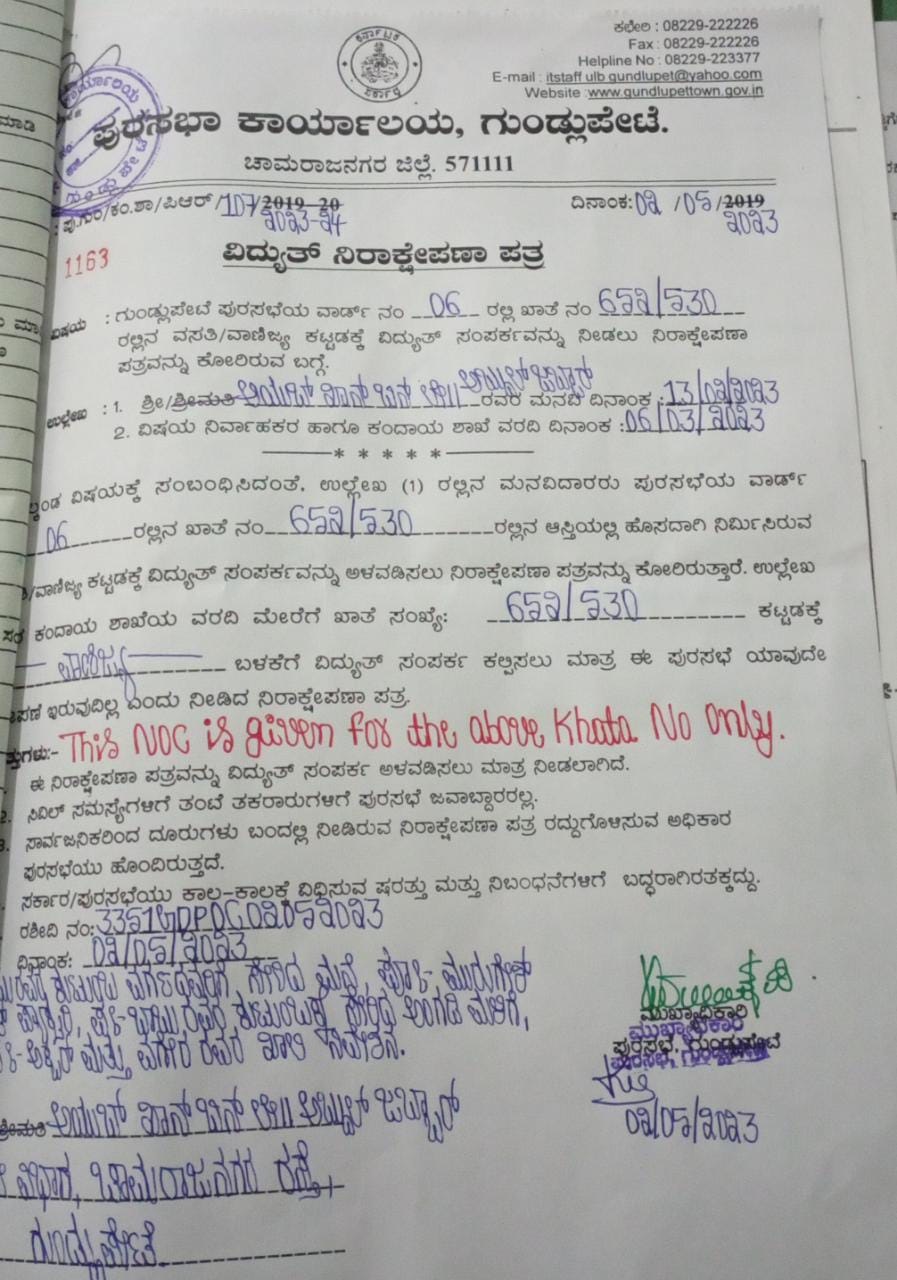 ಕಛೇರಿ : 08229-222226
Fax : 08229-222226
Helpline No : 08229-223377
E-mail : itstaff ulb gundlupet@yahoo.com
Website :www.gundlupettown.gov.in
ಪುರಸಭಾ ಕಾರ್ಯಾಲಯ, ಗುಂಡ್ಲುಪೇಟೆ.
ಚಾಮರಾಜನಗರ ಜಿಲ್ಲೆ. 571111
ಪು.ಗುಂ/ಕಂ.ಶಾ/ಪಿಆರ್/107/2019-20 ದಿನಾಂಕ:02/05/2019
2023-24 2023
1163
ವಿದ್ಯುತ್ ನಿರಾಕ್ಷೇಪಣಾ ಪತ್ರ
ವಿಷಯ : ಗುಂಡ್ಲುಪೇಟೆ ಪುರಸಭೆಯ ವಾರ್ಡ್ ನಂ 06 ರಲ್ಲಿ ಖಾತೆ ನಂ 652/530
ರಲ್ಲಿನ ವಸತಿ/ವಾಣಿಜ್ಯ ಕಟ್ಟಡಕ್ಕೆ ವಿದ್ಯುತ್ ಸಂಪರ್ಕವನ್ನು ನೀಡಲು ನಿರಾಕ್ಷೇಪಣಾ
ಪತ್ರವನ್ನು ಕೋರಿರುವ ಬಗ್ಗೆ.
ಉಲ್ಲೇಖ : 1. ಶ್ರೀ/ಶ್ರೀಮತಿ ಅಯುಬ್ ಖಾನ್ ಬಿನ್ ಲೇ|| ಅಬ್ದುಲ್ ಜಬ್ಬಾರ್ ರವರ ಮನವಿ ದಿನಾಂಕ :13/02/2023
2. ವಿಷಯ ನಿರ್ವಾಹಕರ ಹಾಗೂ ಕಂದಾಯ ಶಾಖೆ ವರದಿ ದಿನಾಂಕ :06/03/2023
* * * * *
ವಿಷಯಕ್ಕೆ ಸಂಬಂಧಿಸಿದಂತೆ, ಉಲ್ಲೇಖ (1) ರಲ್ಲಿನ ಮನವಿದಾರರು ಪುರಸಭೆಯ ವಾರ್ಡ್
06 ರಲ್ಲಿನ ಖಾತೆ ನಂ 652/530 ರಲ್ಲಿನ ಆಸ್ತಿಯಲ್ಲಿ ಹೊಸದಾಗಿ ನಿರ್ಮಿಸಿರುವ
/ವಾಣಿಜ್ಯ ಕಟ್ಟಡಕ್ಕೆ ವಿದ್ಯುತ್ ಸಂಪರ್ಕವನ್ನು ಅಳವಡಿಸಲು ನಿರಾಕ್ಷೇಪಣಾ ಪತ್ರವನ್ನು ಕೋರಿರುತ್ತಾರೆ. ಉಲ್ಲೇಖ
ಕಂದಾಯ ಶಾಖೆಯ ವರದಿ ಮೇರೆಗೆ ಖಾತೆ ಸಂಖ್ಯೆ: 652/530 ಕಟ್ಟಡಕ್ಕೆ
ವಾಣಿಜ್ಯ ಬಳಕೆಗೆ ವಿದ್ಯುತ್ ಸಂಪರ್ಕ ಕಲ್ಪಿಸಲು ಮಾತ್ರ ಈ ಪುರಸಭೆ ಯಾವುದೇ
ಇರುವುದಿಲ್ಲ ಎಂದು ನೀಡಿದ ನಿರಾಕ್ಷೇಪಣಾ ಪತ್ರ.
This NOC is given for the above Khata No Only.
ಈ ನಿರಾಕ್ಷೇಪಣಾ ಪತ್ರವನ್ನು ವಿದ್ಯುತ್ ಸಂಪರ್ಕ ಅಳವಡಿಸಲು ಮಾತ್ರ ನೀಡಲಾಗಿದೆ.
2. ಸಿವಿಲ್ ಸಮಸ್ಯೆಗಳಿಗೆ ತಂಟೆ ತಕರಾರುಗಳಿಗೆ ಪುರಸಭೆ ಜವಾಬ್ದಾರರಲ್ಲ.
3. ಸಾರ್ವಜನಿಕರಿಂದ ದೂರುಗಳು ಬಂದಲ್ಲಿ ನೀಡಿರುವ ನಿರಾಕ್ಷೇಪಣಾ ಪತ್ರ ರದ್ದುಗೊಳಿಸುವ ಅಧಿಕಾರ
ಪುರಸಭೆಯು ಹೊಂದಿರುತ್ತದೆ.
ಸರ್ಕಾರ/ಪುರಸಭೆಯು ಕಾಲ-ಕಾಲಕ್ಕೆ ವಿಧಿಸುವ ಷರತ್ತು ಮತ್ತು ನಿಬಂಧನೆಗಳಿಗೆ ಬದ್ಧರಾಗಿರತಕ್ಕದ್ದು.
ರಶೀದಿ ನಂ:
ದಿನಾಂಕ: 02/05/2023
ಕುಟುಂಬ ವರ್ಗದವರಿಗೆ ಸೇರಿದ ಮಧ್ಯೆ, ಪೂ:-
ರವರ ಕುಟುಂಬಕ್ಕೆ ಸೇರಿದ ಅಂಗಡಿ ಮಳಿಗೆ,
ಮತ್ತು ರವರ ಖಾಲಿ ನಿವೇಶನ.
ಮುಖ್ಯಾಧಿಕಾರಿ
ಮುಖ್ಯಾಧಿಕಾರಿ
ಪುರಸಭೆ, ಗುಂಡ್ಲುಪೇಟೆ
ಪುರಸಭೆ, ಗುಂಡ್ಲುಪೇಟೆ
02/05/2023
ಶ್ರೀಮತಿ ಅಯುಬ್ ಖಾನ್ ಬಿನ್ ಲೇ|| ಅಬ್ದುಲ್ ಜಬ್ಬಾರ್
ಚಾಮರಾಜನಗರ ರಸ್ತೆ,
ಗುಂಡ್ಲುಪೇಟೆ